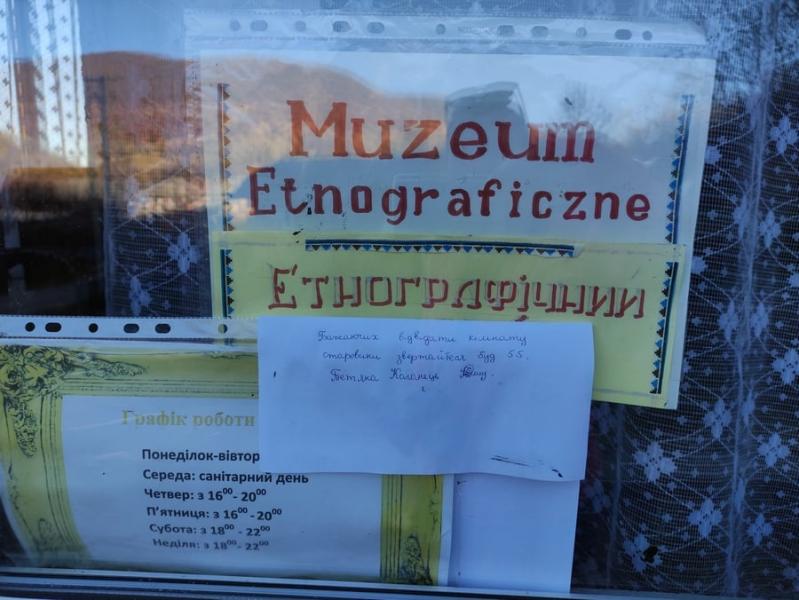 Muzeum
Etnograficzne
Етнографічний
Бажаючих відвідати кімнату
старовини звертайтеся буд 55.
Графік роботи
Понеділок-вівтор
Середа: санітарний день
Четвер: з 16⁰⁰- 20⁰⁰
П'ятниця: з 16⁰⁰ -20⁰⁰
Субота: з 18⁰⁰ - 22⁰⁰
Неділя: з 18⁰⁰ - 22⁰⁰